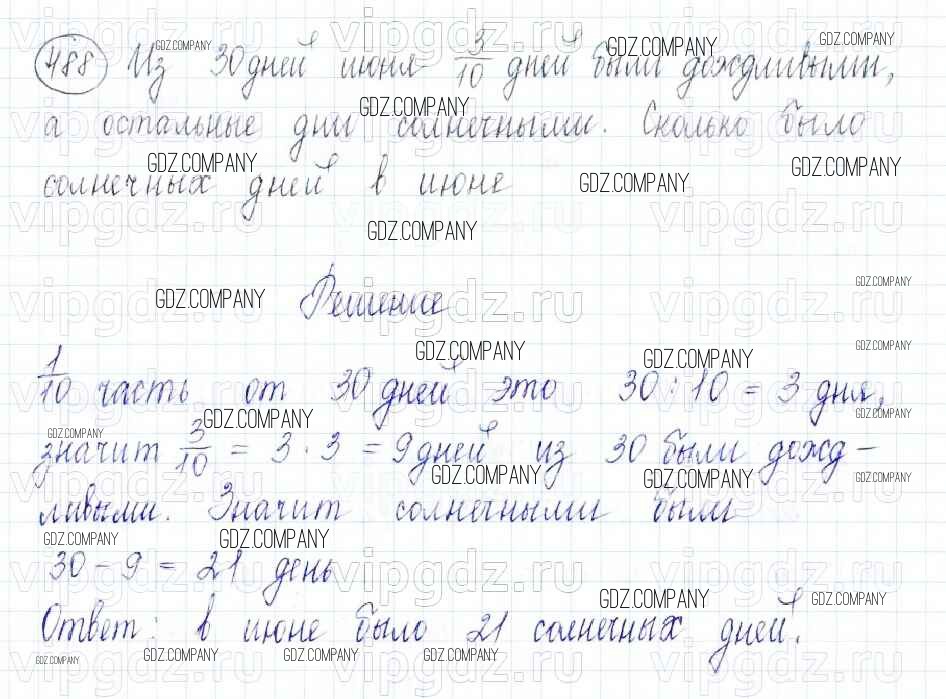 488 Из 30 дней июня 3/10 дней были дождливыми,
а остальные дни солнечными. Сколько было
солнечных дней в июне
Решение
1/10 часть от 30 дней это 30 : 10 = 3 дня,
значит 3/10 = 3 · 3 = 9 дней из 30 были дожд-
ливыми. Значит солнечными были
30 - 9 = 21 день
Ответ: в июне было 21 солнечных дней.
vipgdz.ru
GDZ.COMPANY